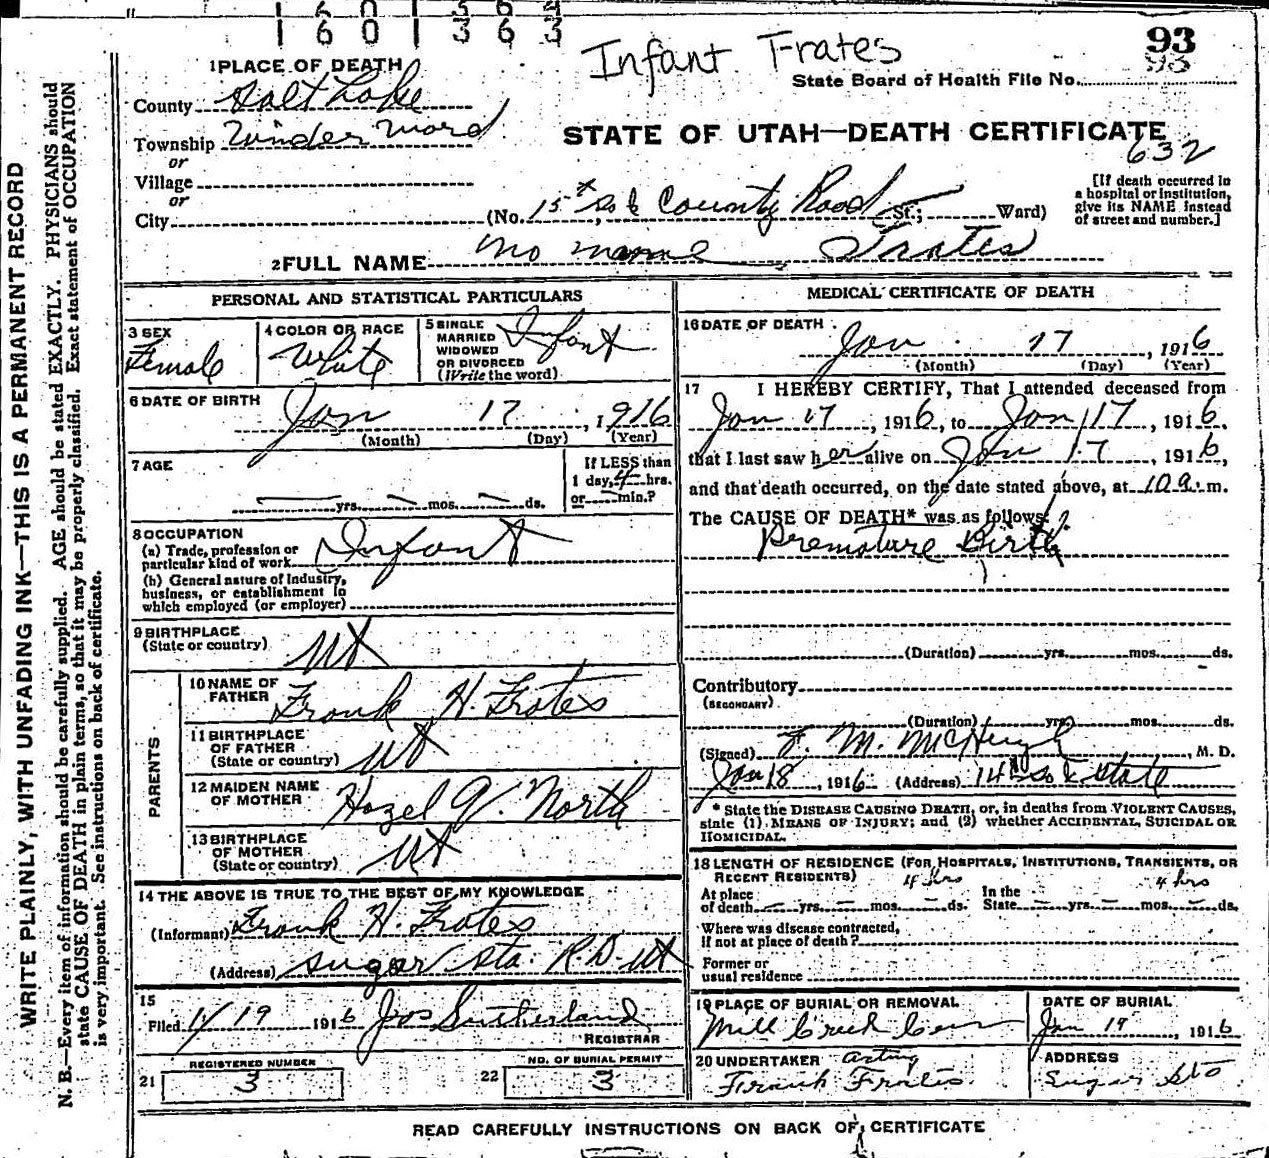 1 6 0 1 3 6 4
1 6 0 1 3 6 3
Infant Frates
93
93
1 PLACE OF DEATH
State Board of Health File No.
County Salt Lake
Township Winder Ward
STATE OF UTAH—DEATH CERTIFICATE
632
or
Village
or
City (No. 15th So & County Road St.; Ward)
[If death occurred in a hospital or institution, give its NAME instead of street and number.]
2 FULL NAME No name Frates
PERSONAL AND STATISTICAL PARTICULARS
3 SEX
Female
4 COLOR OR RACE
White
5 SINGLE
MARRIED
WIDOWED
OR DIVORCED
(Write the word)
Infant
6 DATE OF BIRTH
Jan 17, 1916
(Month) (Day) (Year)
7 AGE
yrs. mos. ds.
If LESS than
1 day, 4 hrs.
or min.?
8 OCCUPATION
(a) Trade, profession or
particular kind of work Infant
(b) General nature of industry,
business, or establishment in
which employed (or employer)
9 BIRTHPLACE
(State or country) Ut
PARENTS
10 NAME OF
FATHER Frank H. Frates
11 BIRTHPLACE
OF FATHER
(State or country) Ut
12 MAIDEN NAME
OF MOTHER Hazel V. North
13 BIRTHPLACE
OF MOTHER
(State or country) Ut
14 THE ABOVE IS TRUE TO THE BEST OF MY KNOWLEDGE
(Informant) Frank H. Frates
(Address) Sugar Sta. R.D. Ut
15
Filed 1/19 1916 Jos Sutherland
REGISTRAR
REGISTERED NUMBER
21 3
NO. OF BURIAL PERMIT
22 3
MEDICAL CERTIFICATE OF DEATH
16 DATE OF DEATH
Jan. 17, 1916
(Month) (Day) (Year)
17 I HEREBY CERTIFY, That I attended deceased from
Jan 17, 1916, to Jan 17, 1916,
that I last saw her alive on Jan 17, 1916,
and that death occurred, on the date stated above, at 10 a. m.
The CAUSE OF DEATH* was as follows:
Premature Birth
(Duration) yrs. mos. ds.
Contributory
(SECONDARY)
(Duration) yrs. mos. ds.
(Signed) F. M. McHugh, M. D.
Jan 18, 1916 (Address) 14th So & State
* State the DISEASE CAUSING DEATH, or, in deaths from VIOLENT CAUSES,
state (1) MEANS OF INJURY; and (2) whether ACCIDENTAL, SUICIDAL OR
HOMICIDAL.
18 LENGTH OF RESIDENCE (FOR HOSPITALS, INSTITUTIONS, TRANSIENTS, OR
RECENT RESIDENTS) 4 hrs 4 hrs
At place In the
of death yrs. mos. ds. State yrs. mos. ds.
Where was disease contracted,
if not at place of death?
Former or
usual residence
19 PLACE OF BURIAL OR REMOVAL
Mill Creek Cem
DATE OF BURIAL
Jan 19, 1916
20 UNDERTAKER acting
Frank Frates
ADDRESS
Sugar Sta
READ CAREFULLY INSTRUCTIONS ON BACK OF CERTIFICATE
WRITE PLAINLY, WITH UNFADING INK—THIS IS A PERMANENT RECORD
N. B.—Every item of information should be carefully supplied. AGE should be stated EXACTLY. PHYSICIANS should
state CAUSE OF DEATH in plain terms, so that it may be properly classified. Exact statement of OCCUPATION
is very important. See instructions on back of certificate.